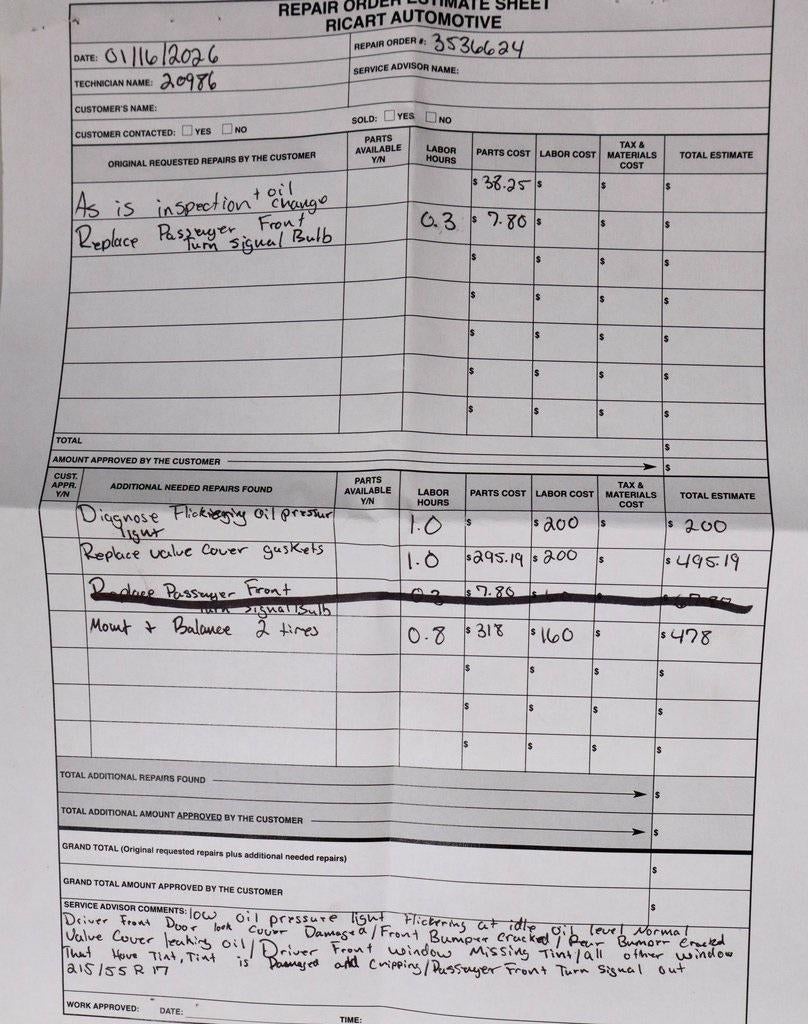 REPAIR ORDER ESTIMATE SHEET
RICART AUTOMOTIVE
DATE: 01/16/2026 REPAIR ORDER #: 3536624
TECHNICIAN NAME: 20986 SERVICE ADVISOR NAME:
CUSTOMER'S NAME:
CUSTOMER CONTACTED: YES NO SOLD: YES NO
ORIGINAL REQUESTED REPAIRS BY THE CUSTOMER PARTS AVAILABLE Y/N LABOR HOURS PARTS COST LABOR COST TAX & MATERIALS COST TOTAL ESTIMATE
As is inspection + oil change $ 38.25 $ $ $
Replace Passenger Front Turn Signal Bulb 0.3 $ 7.80 $ $ $
$ $ $ $
$ $ $ $
$ $ $ $
$ $ $ $
$ $ $ $
TOTAL $
AMOUNT APPROVED BY THE CUSTOMER $
CUST. APPR. Y/N ADDITIONAL NEEDED REPAIRS FOUND PARTS AVAILABLE Y/N LABOR HOURS PARTS COST LABOR COST TAX & MATERIALS COST TOTAL ESTIMATE
Diagnose Flickering oil pressur light 1.0 $ $ 200 $ $ 200
Replace valve cover gaskets 1.0 $ 295.19 $ 200 $ $ 495.19
Replace Passenger Front Turn Signal Bulb 0.3 $ 7.80
Mount + Balance 2 tires 0.8 $ 318 $ 160 $ $ 478
$ $ $ $
$ $ $ $
$ $ $ $
TOTAL ADDITIONAL REPAIRS FOUND $
TOTAL ADDITIONAL AMOUNT APPROVED BY THE CUSTOMER $
GRAND TOTAL (Original requested repairs plus additional needed repairs) $
GRAND TOTAL AMOUNT APPROVED BY THE CUSTOMER $
SERVICE ADVISOR COMMENTS: low oil pressure light flickering at idle oil level Normal
Driver Front Door lock Cover Damaged / Front Bumper Cracked / Rear Bumper Cracked
Value Cover leaking oil / Driver Front Window Missing Tint / all other window
That Have Tint, Tint is Damaged and Chipping / Passenger Front Turn Signal out
215/55 R 17
WORK APPROVED: DATE: TIME: